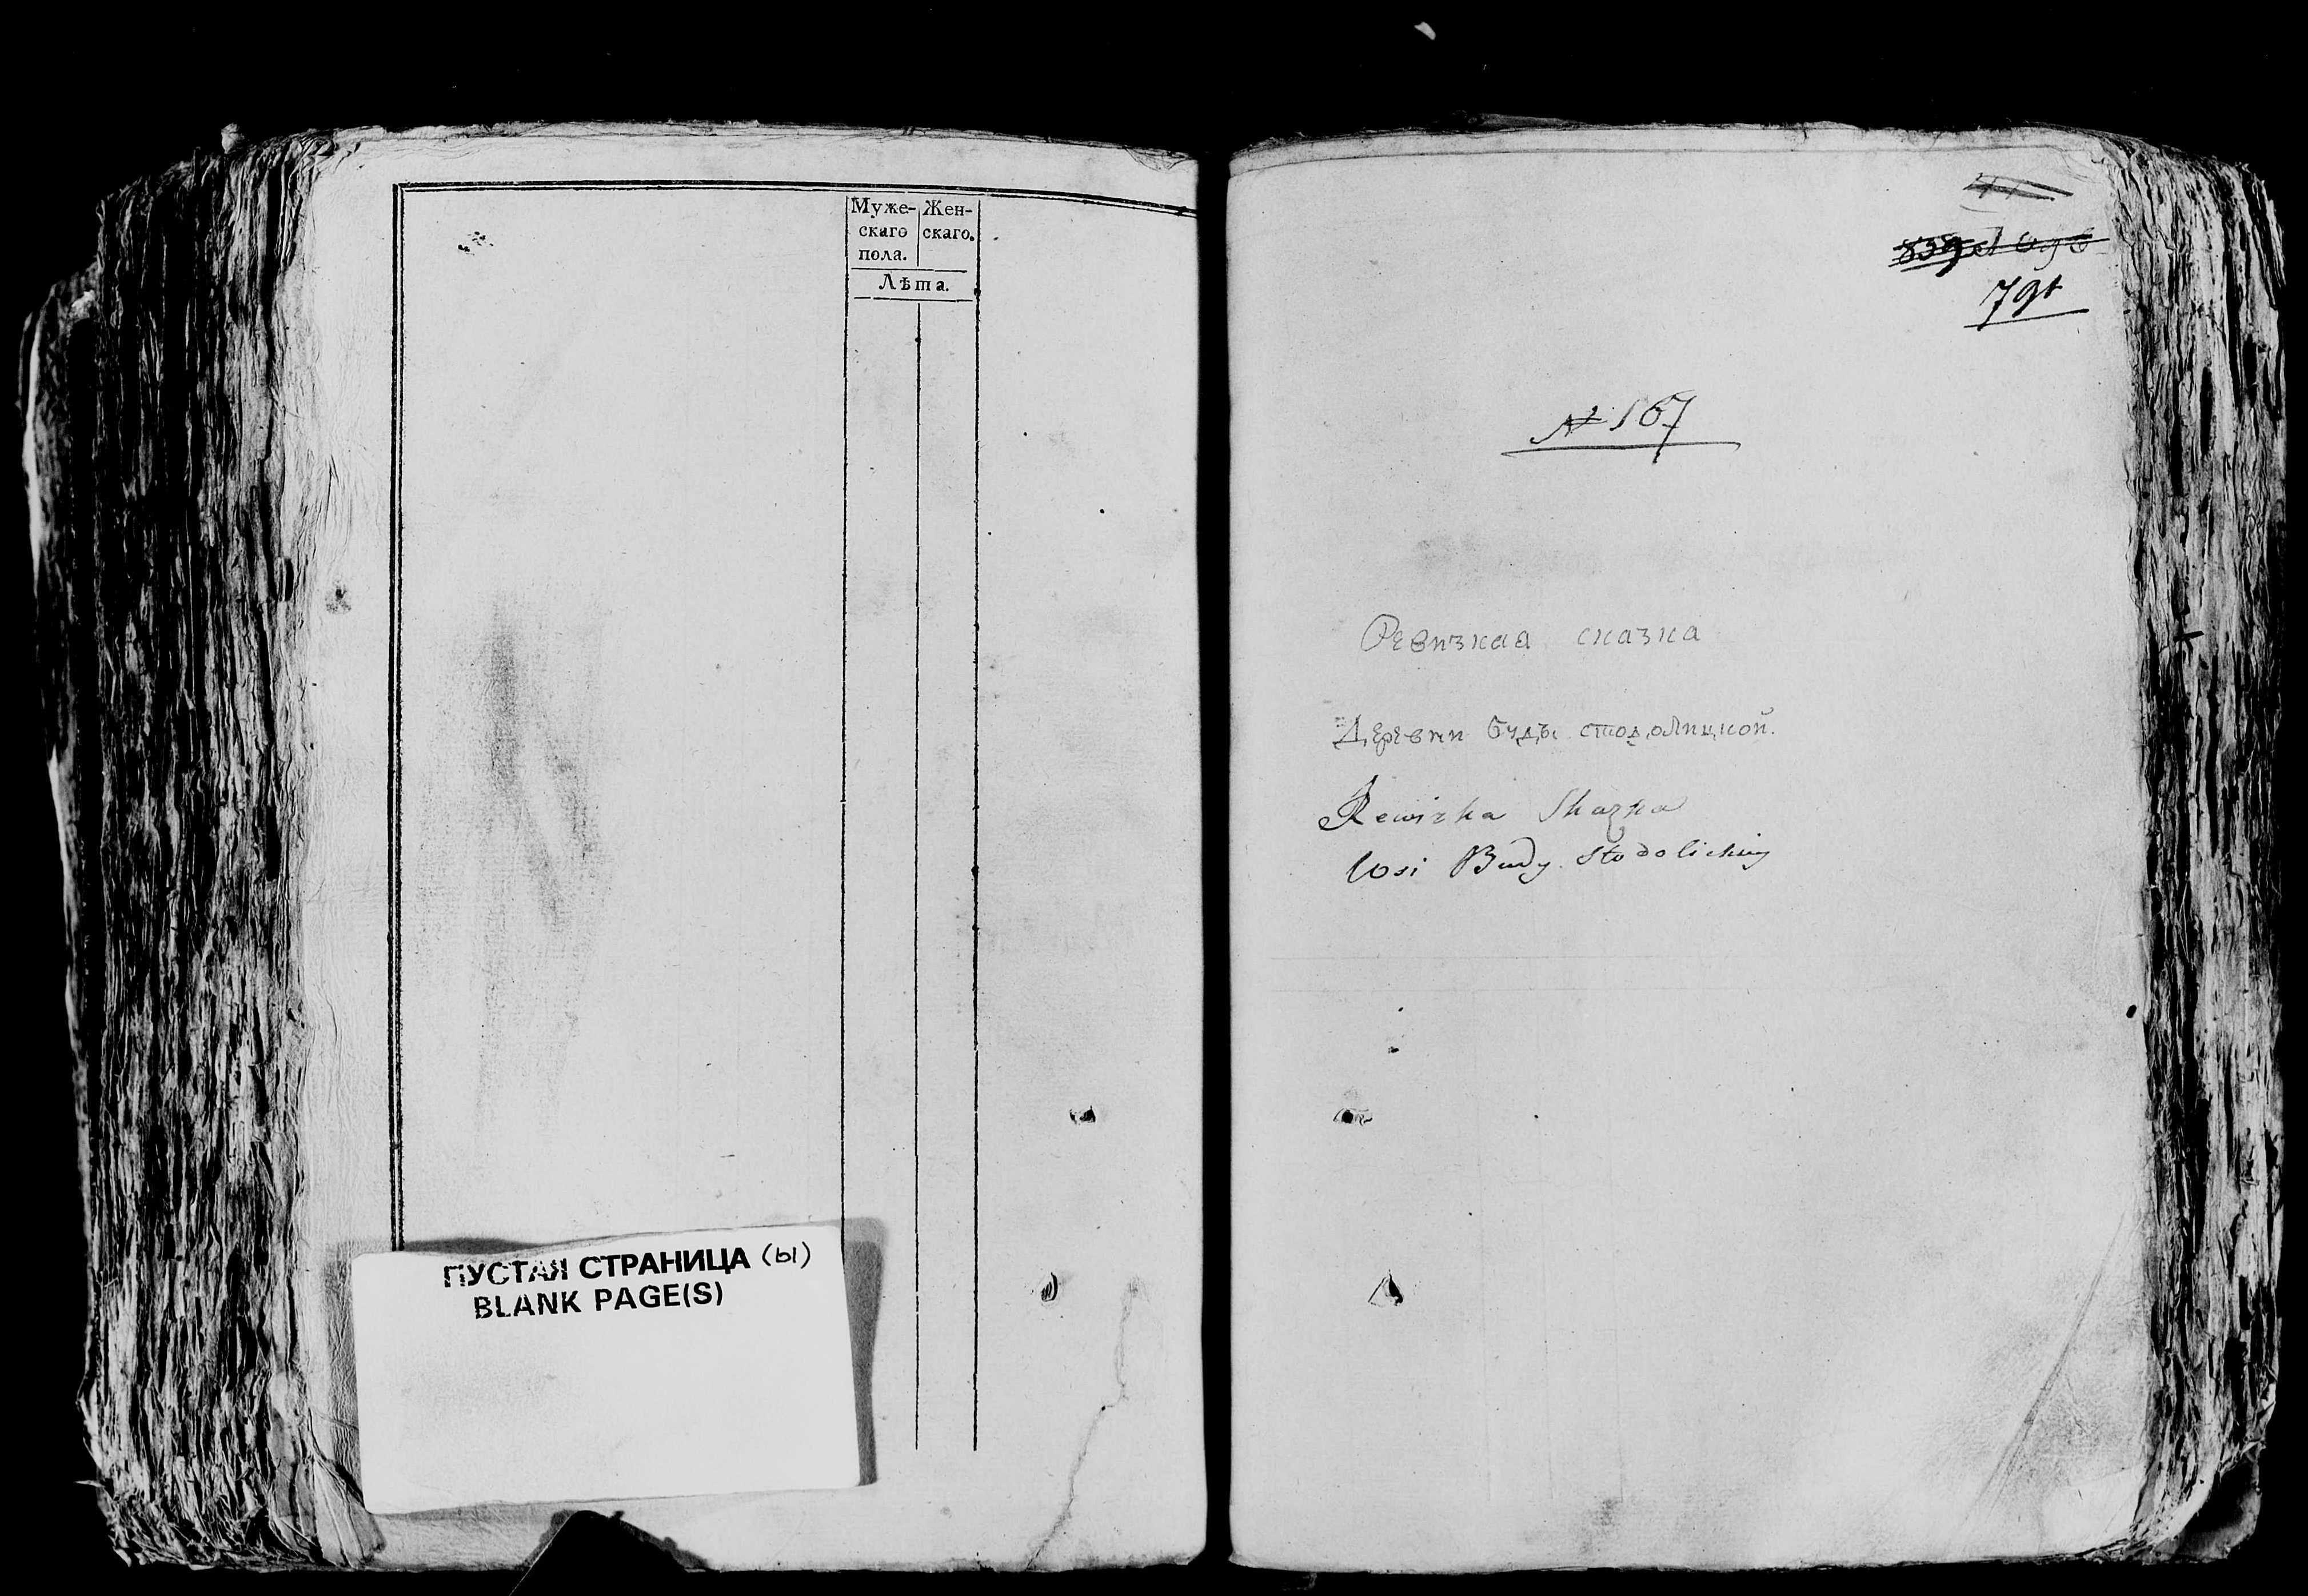 Муже- Жен-
скаго скаго.
пола.
Лѣта.
ПУСТАЯ СТРАНИЦА (ы)
BLANK PAGE(S)
791
№ 167
Ревизкая сказка
Деревни Буды стодолицкой.
Rewizka Skazka
Wsi Budy Stodolickiey